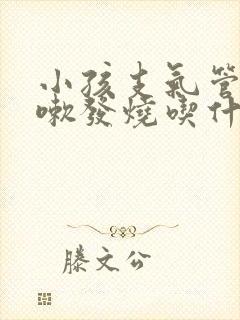 小孩支氣管
嗽發燒喫什
滕文公